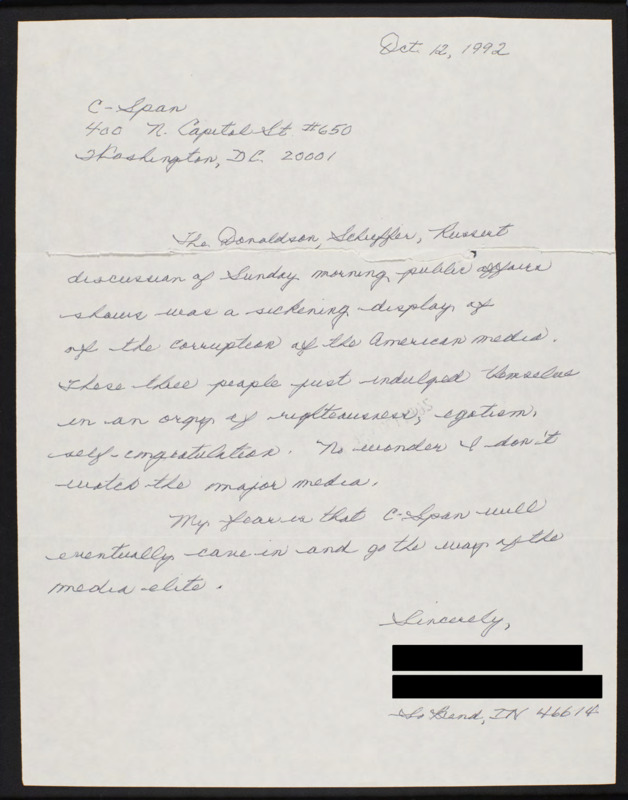 Oct. 12, 1992
C-Span
400 N. Capitol St #650
Washington, D.C. 20001
The Donaldson, Schieffer, Russert
discussion of Sunday morning public affairs
shows was a sickening display of
of the corruption of the American media.
These three people just indulged themselves
in an orgy of righteousness, egotism,
self-congratulation. No wonder I don't
watch the major media.
My fear is that C-Span will
eventually cave in and go the way of the
media elite.
Sincerely,
So Bend, IN 46614